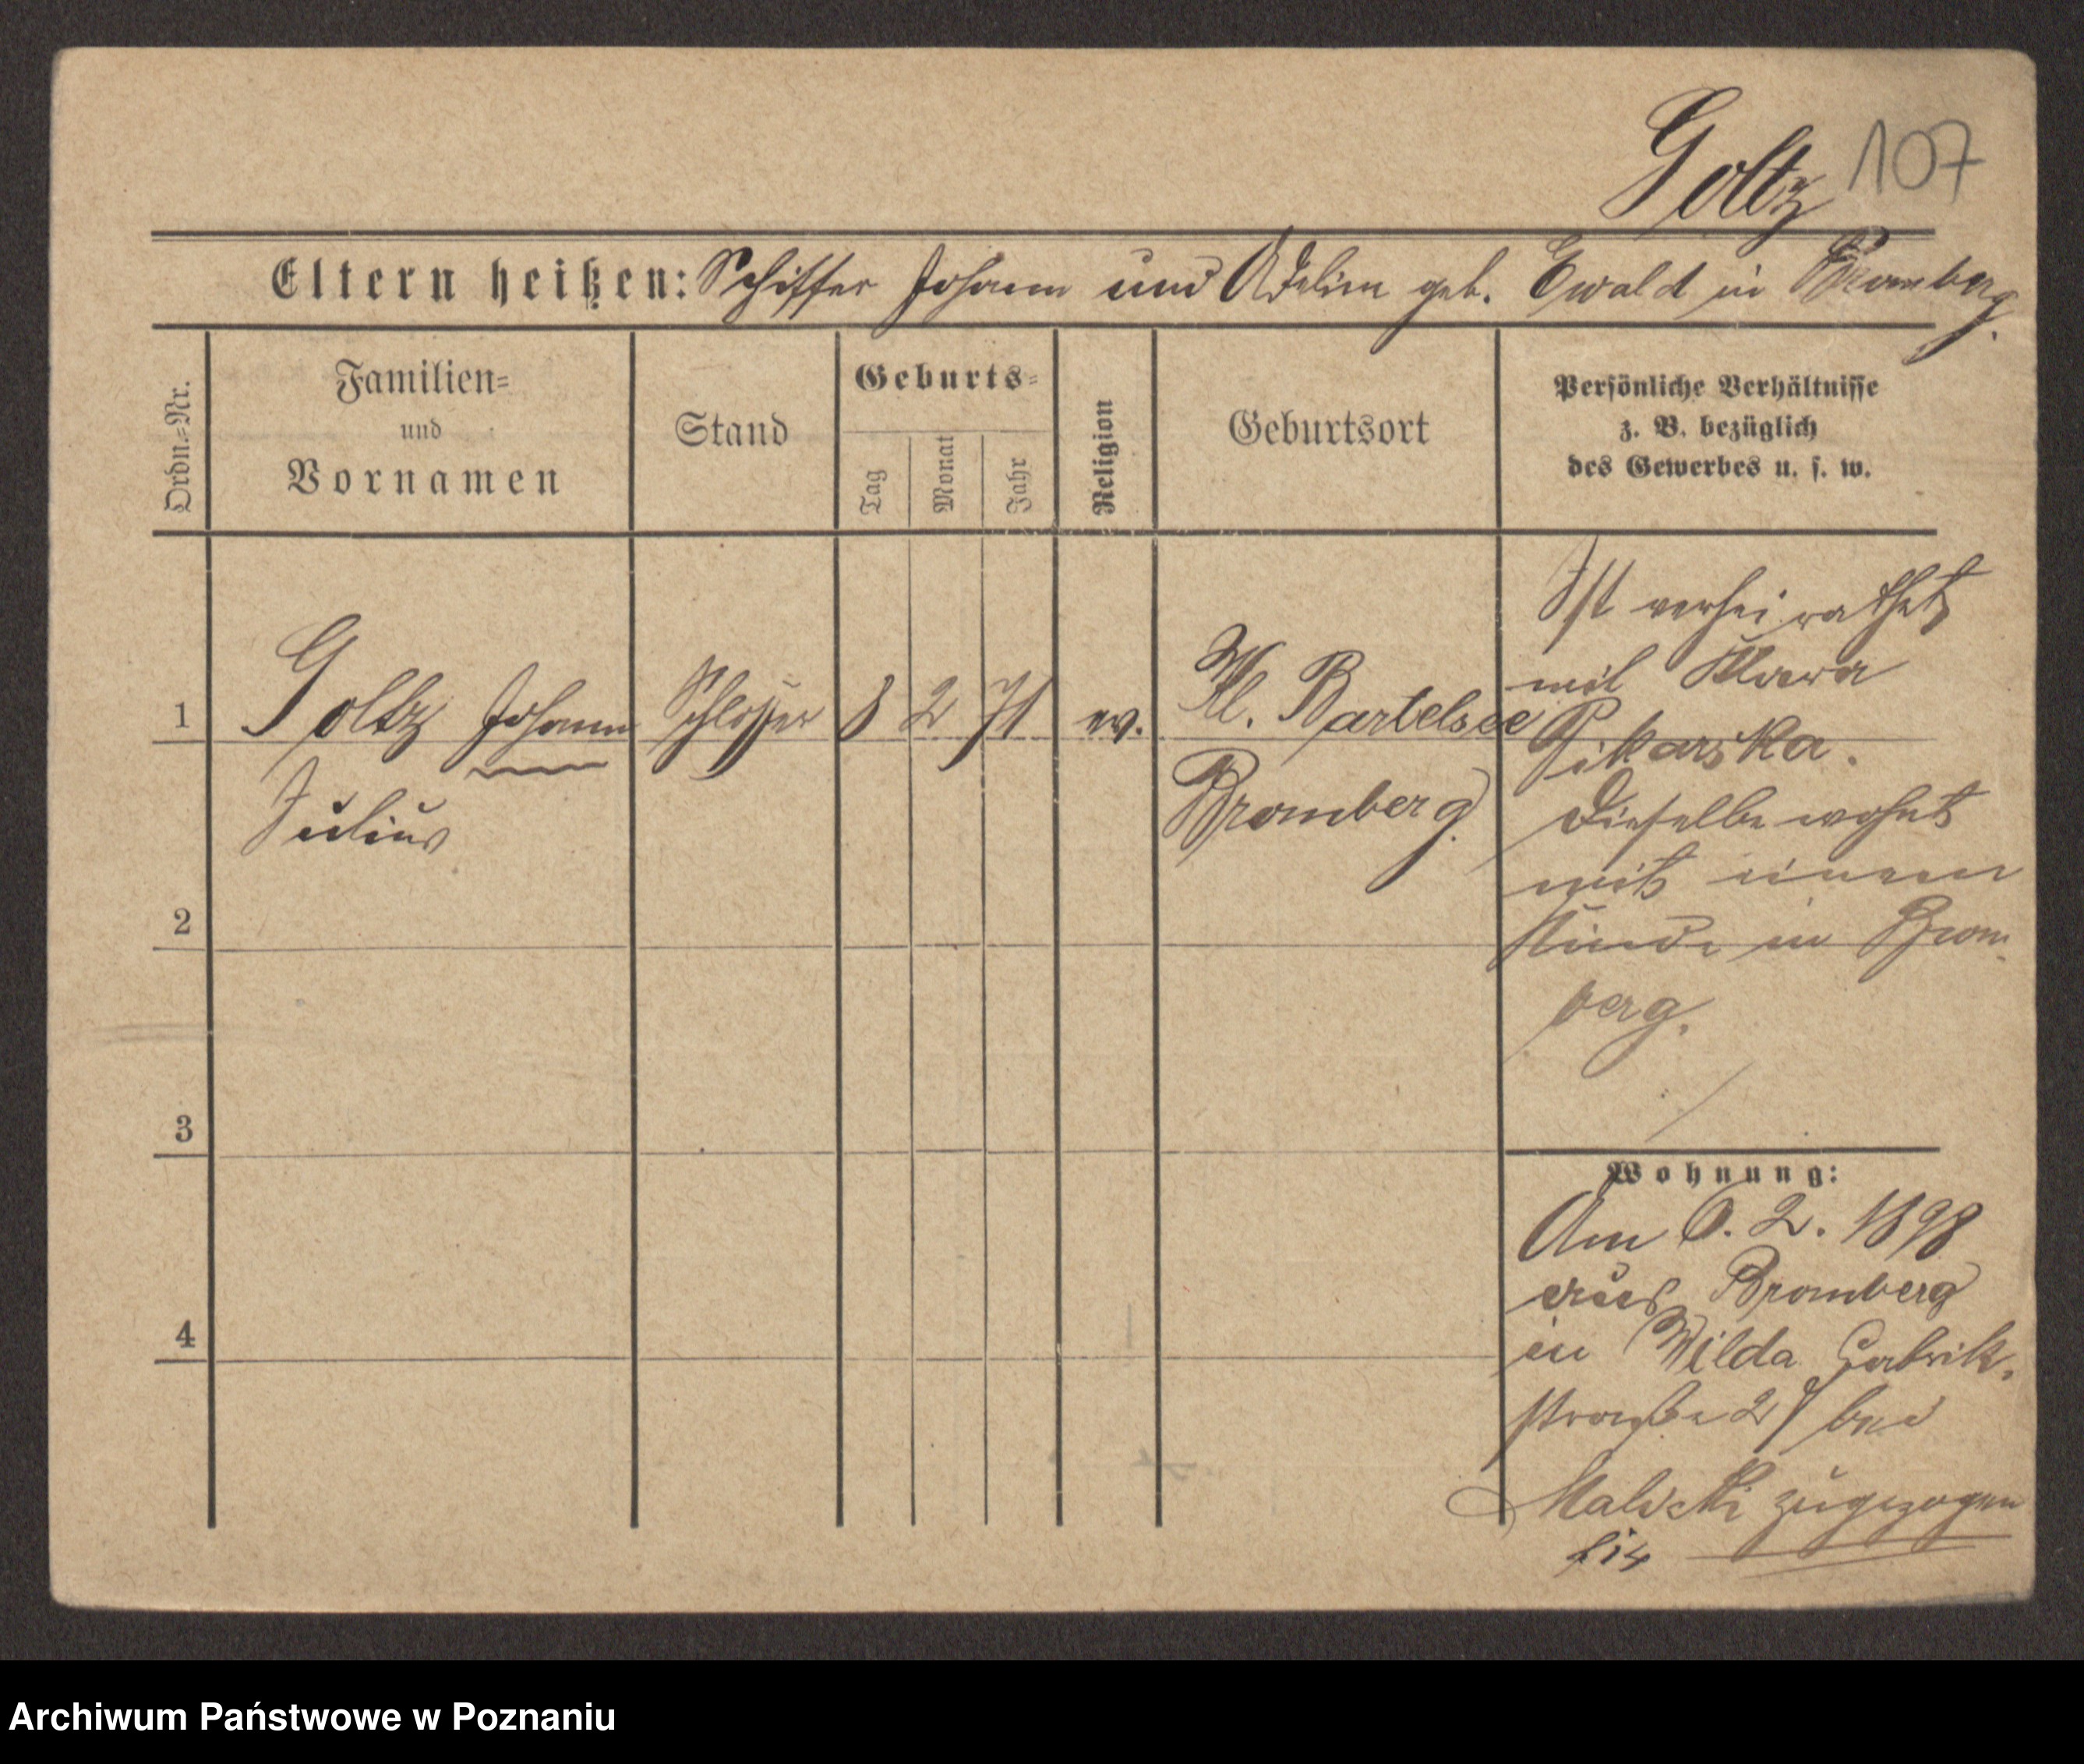 Goltz 107
Eltern heißen: Schiffer Johann und Adeline geb. Ewald in Bromberg.
Ordn.=Nr.
Familien=
und
Vornamen
Stand
Geburts=
Tag
Monat
Jahr
Religion
Geburtsort
Persönliche Verhältnisse
z. B. bezüglich
des Gewerbes u. s. w.
1 Goltz Johann Schlosser 8 2 71 ev. Kl. Bartelsee
Julius
Bromberg
Ist verheirathet
mit Klara
Pikarska.
Dieselbe wohnt
mit einem
Kinde in Brom-
berg.
2
3
4
Wohnung:
Am 6. 2. 1898
aus Bromberg
in Wilda Fabrik-
straße bei
Malicki zugezogen
Archiwum Państwowe w Poznaniu